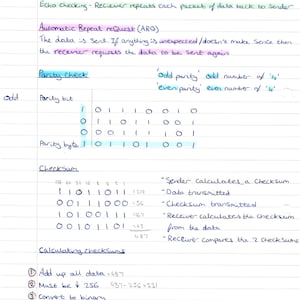 Echo checking - Reciever repeats each packet of data back to sender
Automatic Repeat reQuest (ARQ)
The data is sent. If anything is unexpected/doesn't make sence then
the reciever requests the data to be sent again
Parity Check
'odd parity' odd number of '1s'
'even parity' even number of '1s'
odd
Parity bit
1 0 1 1 1 0 0 1 0
Parity byte
Checksum
- Sender calculates a checksum
- Data transmitted
- Checksum transmitted
- Receiver calculates the checksum
from the data
- Receiver compares the 2 checksums
0 0 1 1 1 0 0 0
1 0 1 0 0 1 1 1
487
Calculating checksums
① Add up all data = 487
② Must be < 256 487-256=231
③ Convert to binary